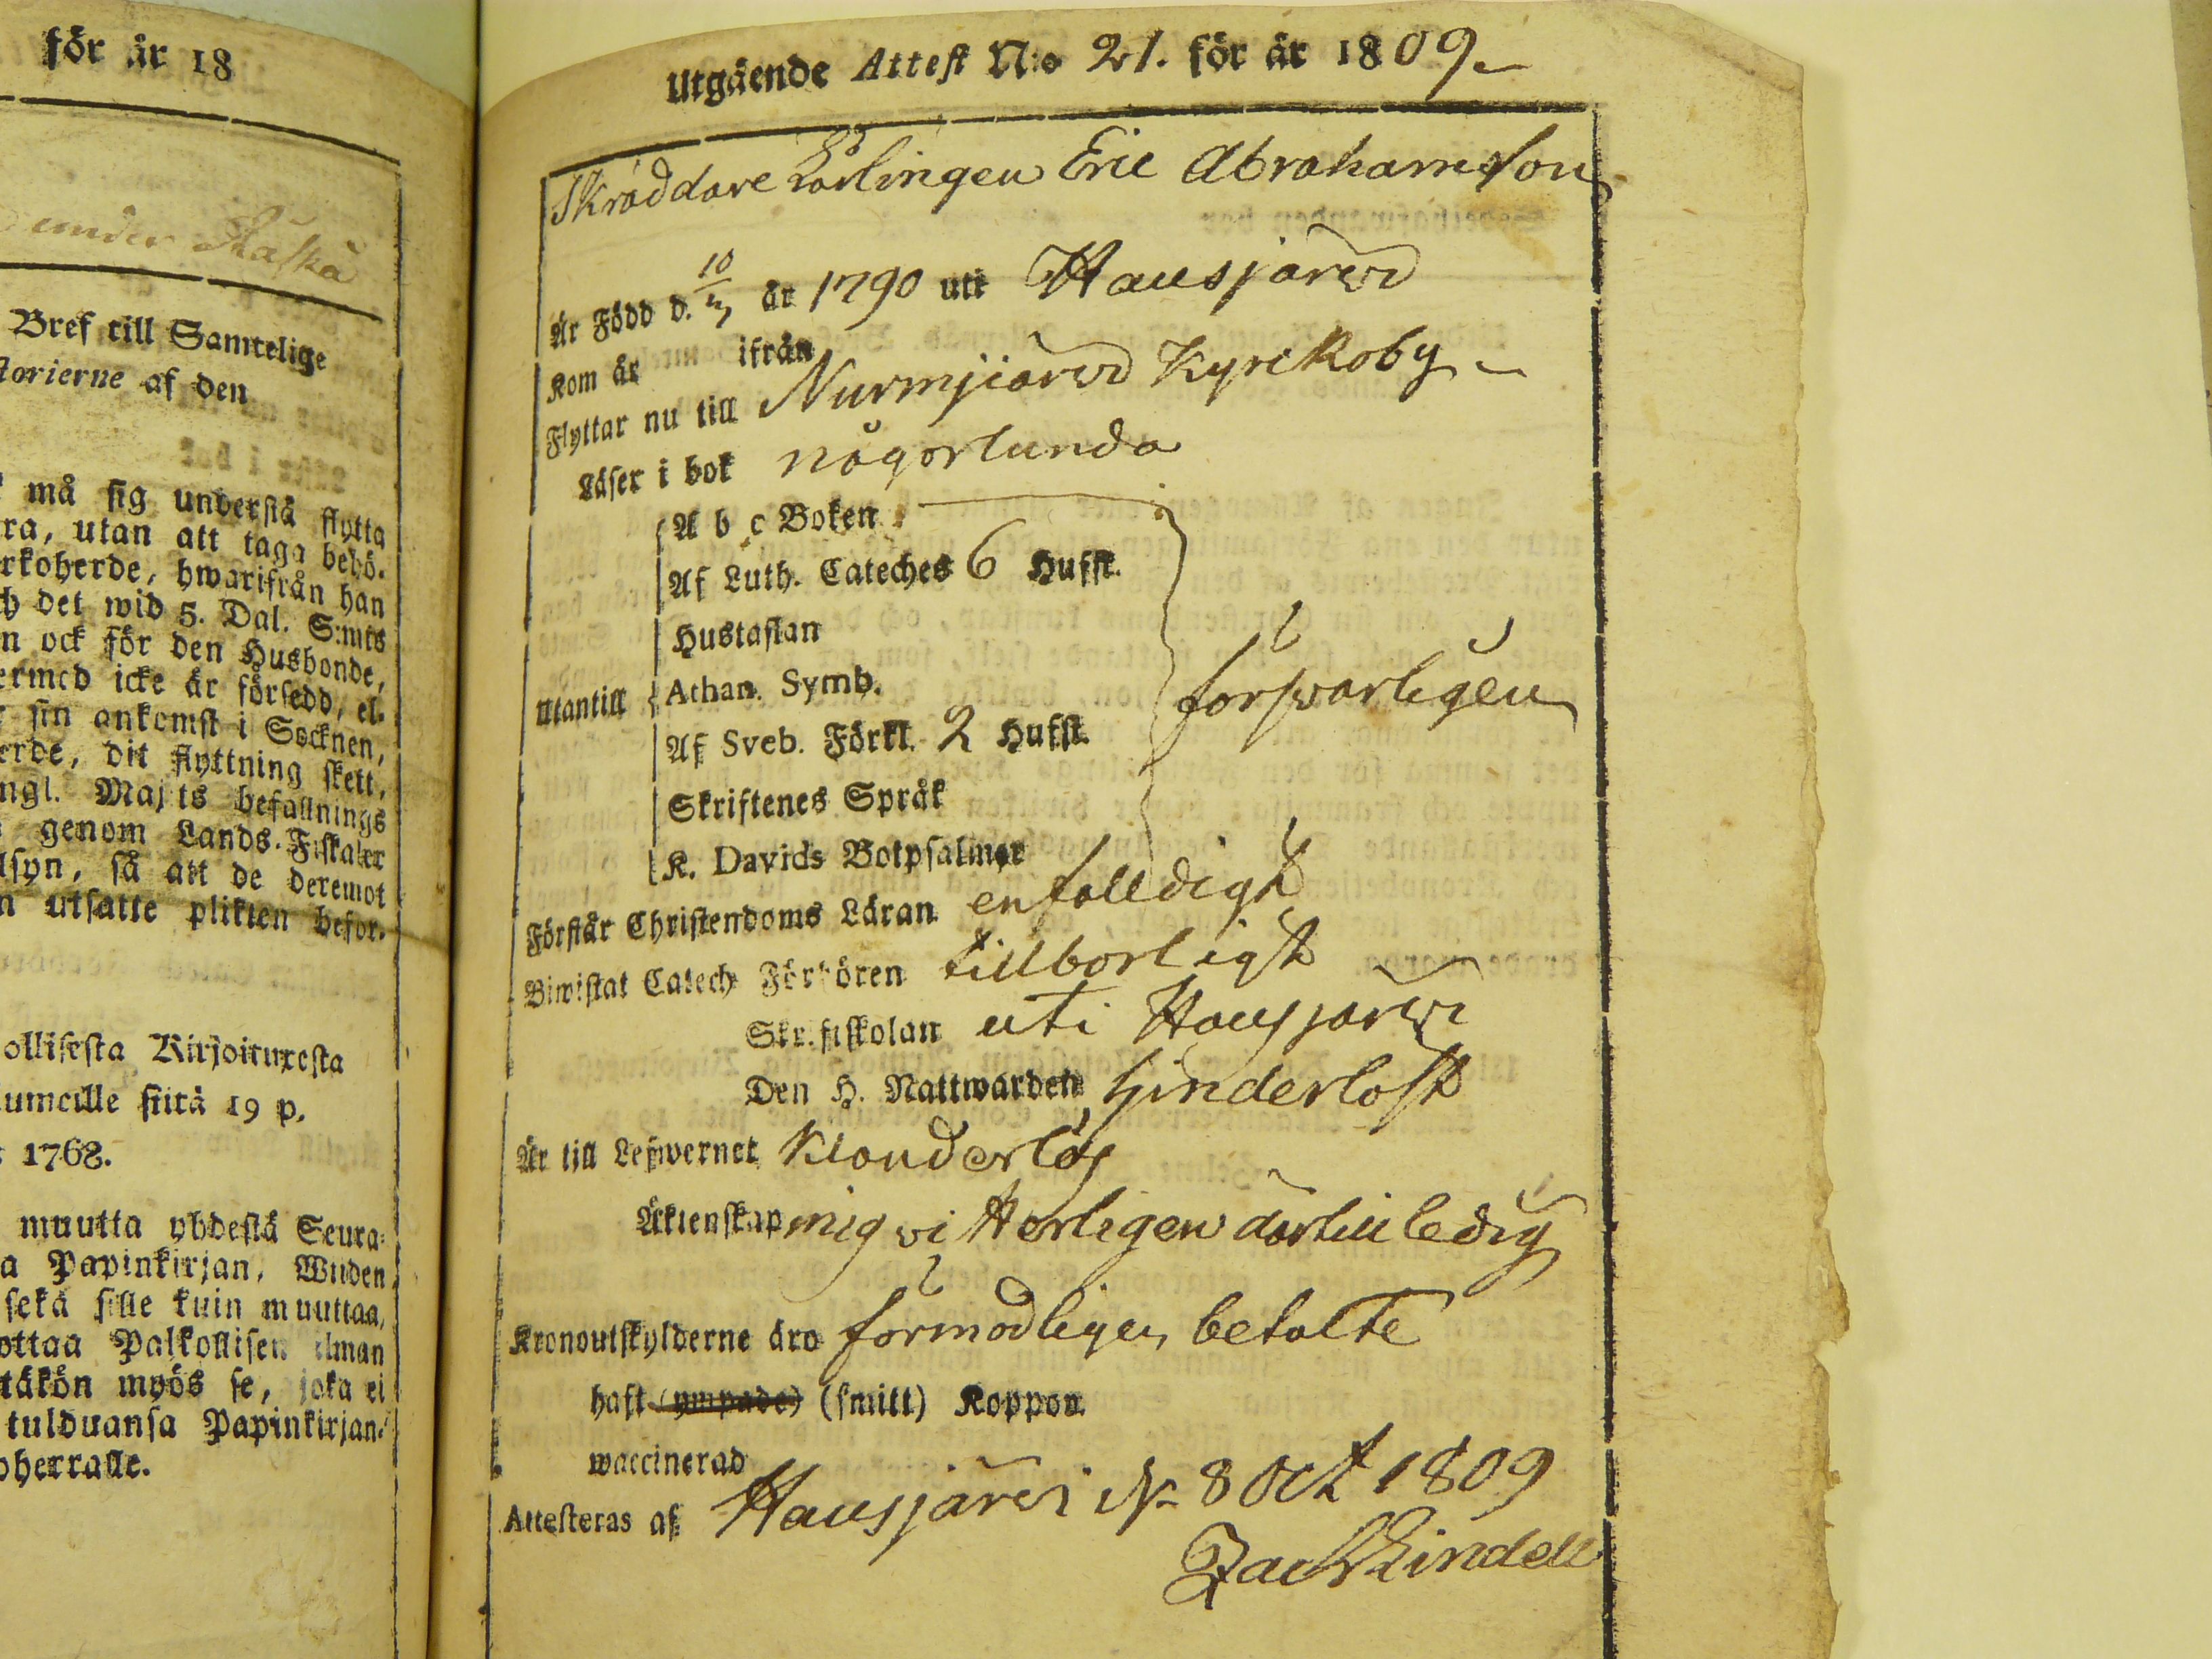 för år 18
under
Bref till Samtelige
storierne af den
må sig understå flytta
ra, utan att taga behö-
rkoherde, hwarifrån han
h det wid 5. Dal. S:mts
n ock för den Husbonde,
ermed icke är försedd, el-
r sin ankomst i Socknen,
erde, dit flyttning skett,
ngl. Maj:ts befallnings
genom Lands-Fiskaler
lsyn, så att de deremot
n utsatte plikten befor-
ollisesta Kirjoituxesta
umcille siitä 19 p.
1768.
muutta yhdestä Seura-
a Papinkirjan, Wiiden
sekä sille kuin muuttaa,
ottaa Palkollisen ilman
täkön myös se, joka ei
tulduansa Papinkirjan-
oherralle.
Utgående Attest N:o 21. för år 1809.
Skräddare Lärlingen Eric Abrahamsson
Är Född d. 10/3 år 1790 uti Hausjärwi
Kom år ifrån
Flyttar nu till Nurmijärwi Kyrckoby
Läser i bok någorlunda
A b c Boken
Af Luth. Cateches 6 Hufst.
Hustaflan
Utantill Athan. Symb. försvarligen
Af Sveb. Förkl. 2 Hufst.
Skriftenes Språk
K. Davids Botpsalmer
Förstår Christendoms Läran enfalldigt
Biwistat Catech. Förhören tillborligt
Skriftskolan uti Hausjärwi
Den H. Nattwarden hinderlöst
Är till Lefwernet klanderlös
Äktenskap mig vitterligen därtill ledig
Kronoutskylderne äro förmodligen betalte
haft (ympade) (smitt) Koppor
waccinerad
Attesteras af Hausjärwi d. 8 Oct 1809
Zach Lindell